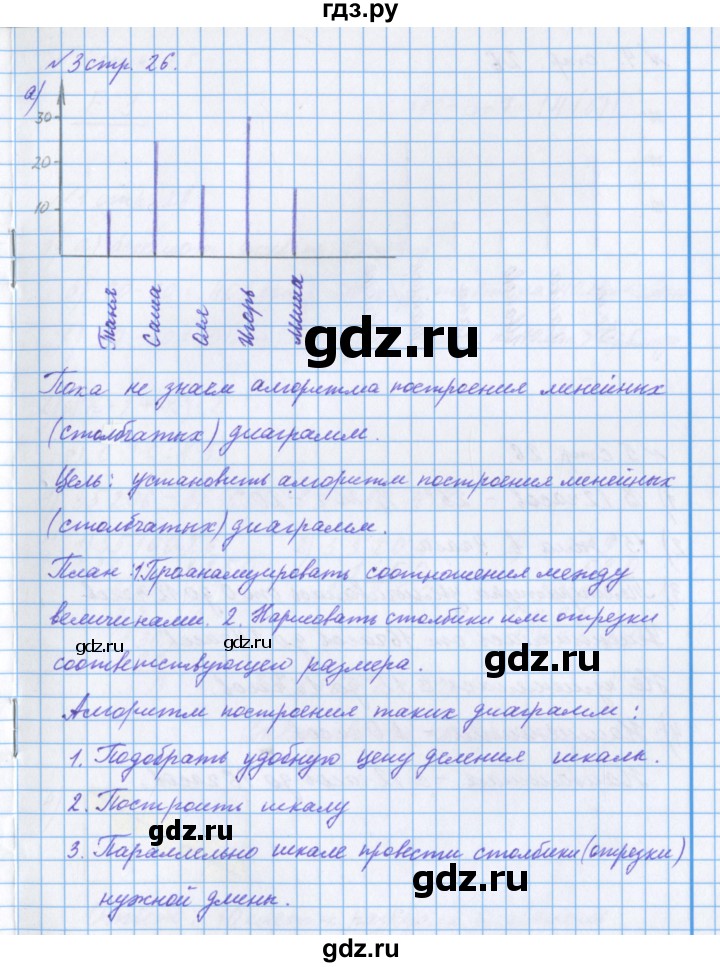 гдз.ру
№3 стр. 26.
а)
30
20
10
Таня
Саша
Оля
Игорь
Миша
gdz.ru
Пока не знаем алгоритма построения линейных
(столбчатых) диаграмм.
Цель: установить алгоритм построения линейных
(столбчатых) диаграмм.
gdz.ru
План: 1. Проанализировать соотношения между
величинами. 2. Нарисовать столбики или отрезки
gdz.ru
gdz.ru
соответствующего размера.
gdz.ru
Алгоритм построения таких диаграмм:
1. Подобрать удобную цену деления шкалы.
2. Построить шкалу
gdz.ru
3. Параллельно шкале провести столбики (отрезки)
gdz.ru
нужной длины.
gdz.ru